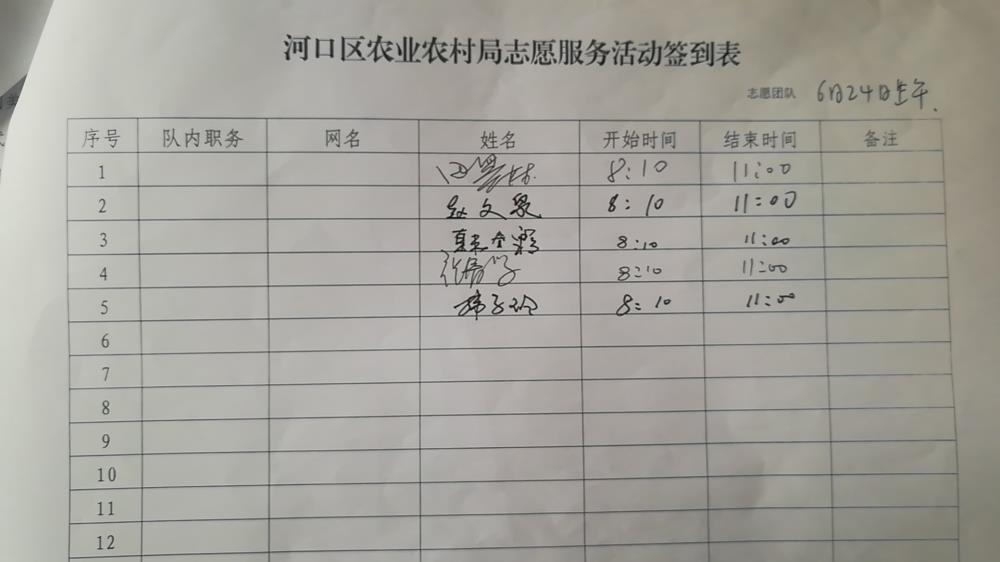 河口区农业农村局志愿服务活动签到表
志愿团队 6月24日上午.
序号 队内职务 网名 姓名 开始时间 结束时间 备注
1 8:10 11:00
2 赵文泉 8:10 11:00
3 8:10 11:00
4 8:10 11:00
5 8:10 11:00
6
7
8
9
10
11
12